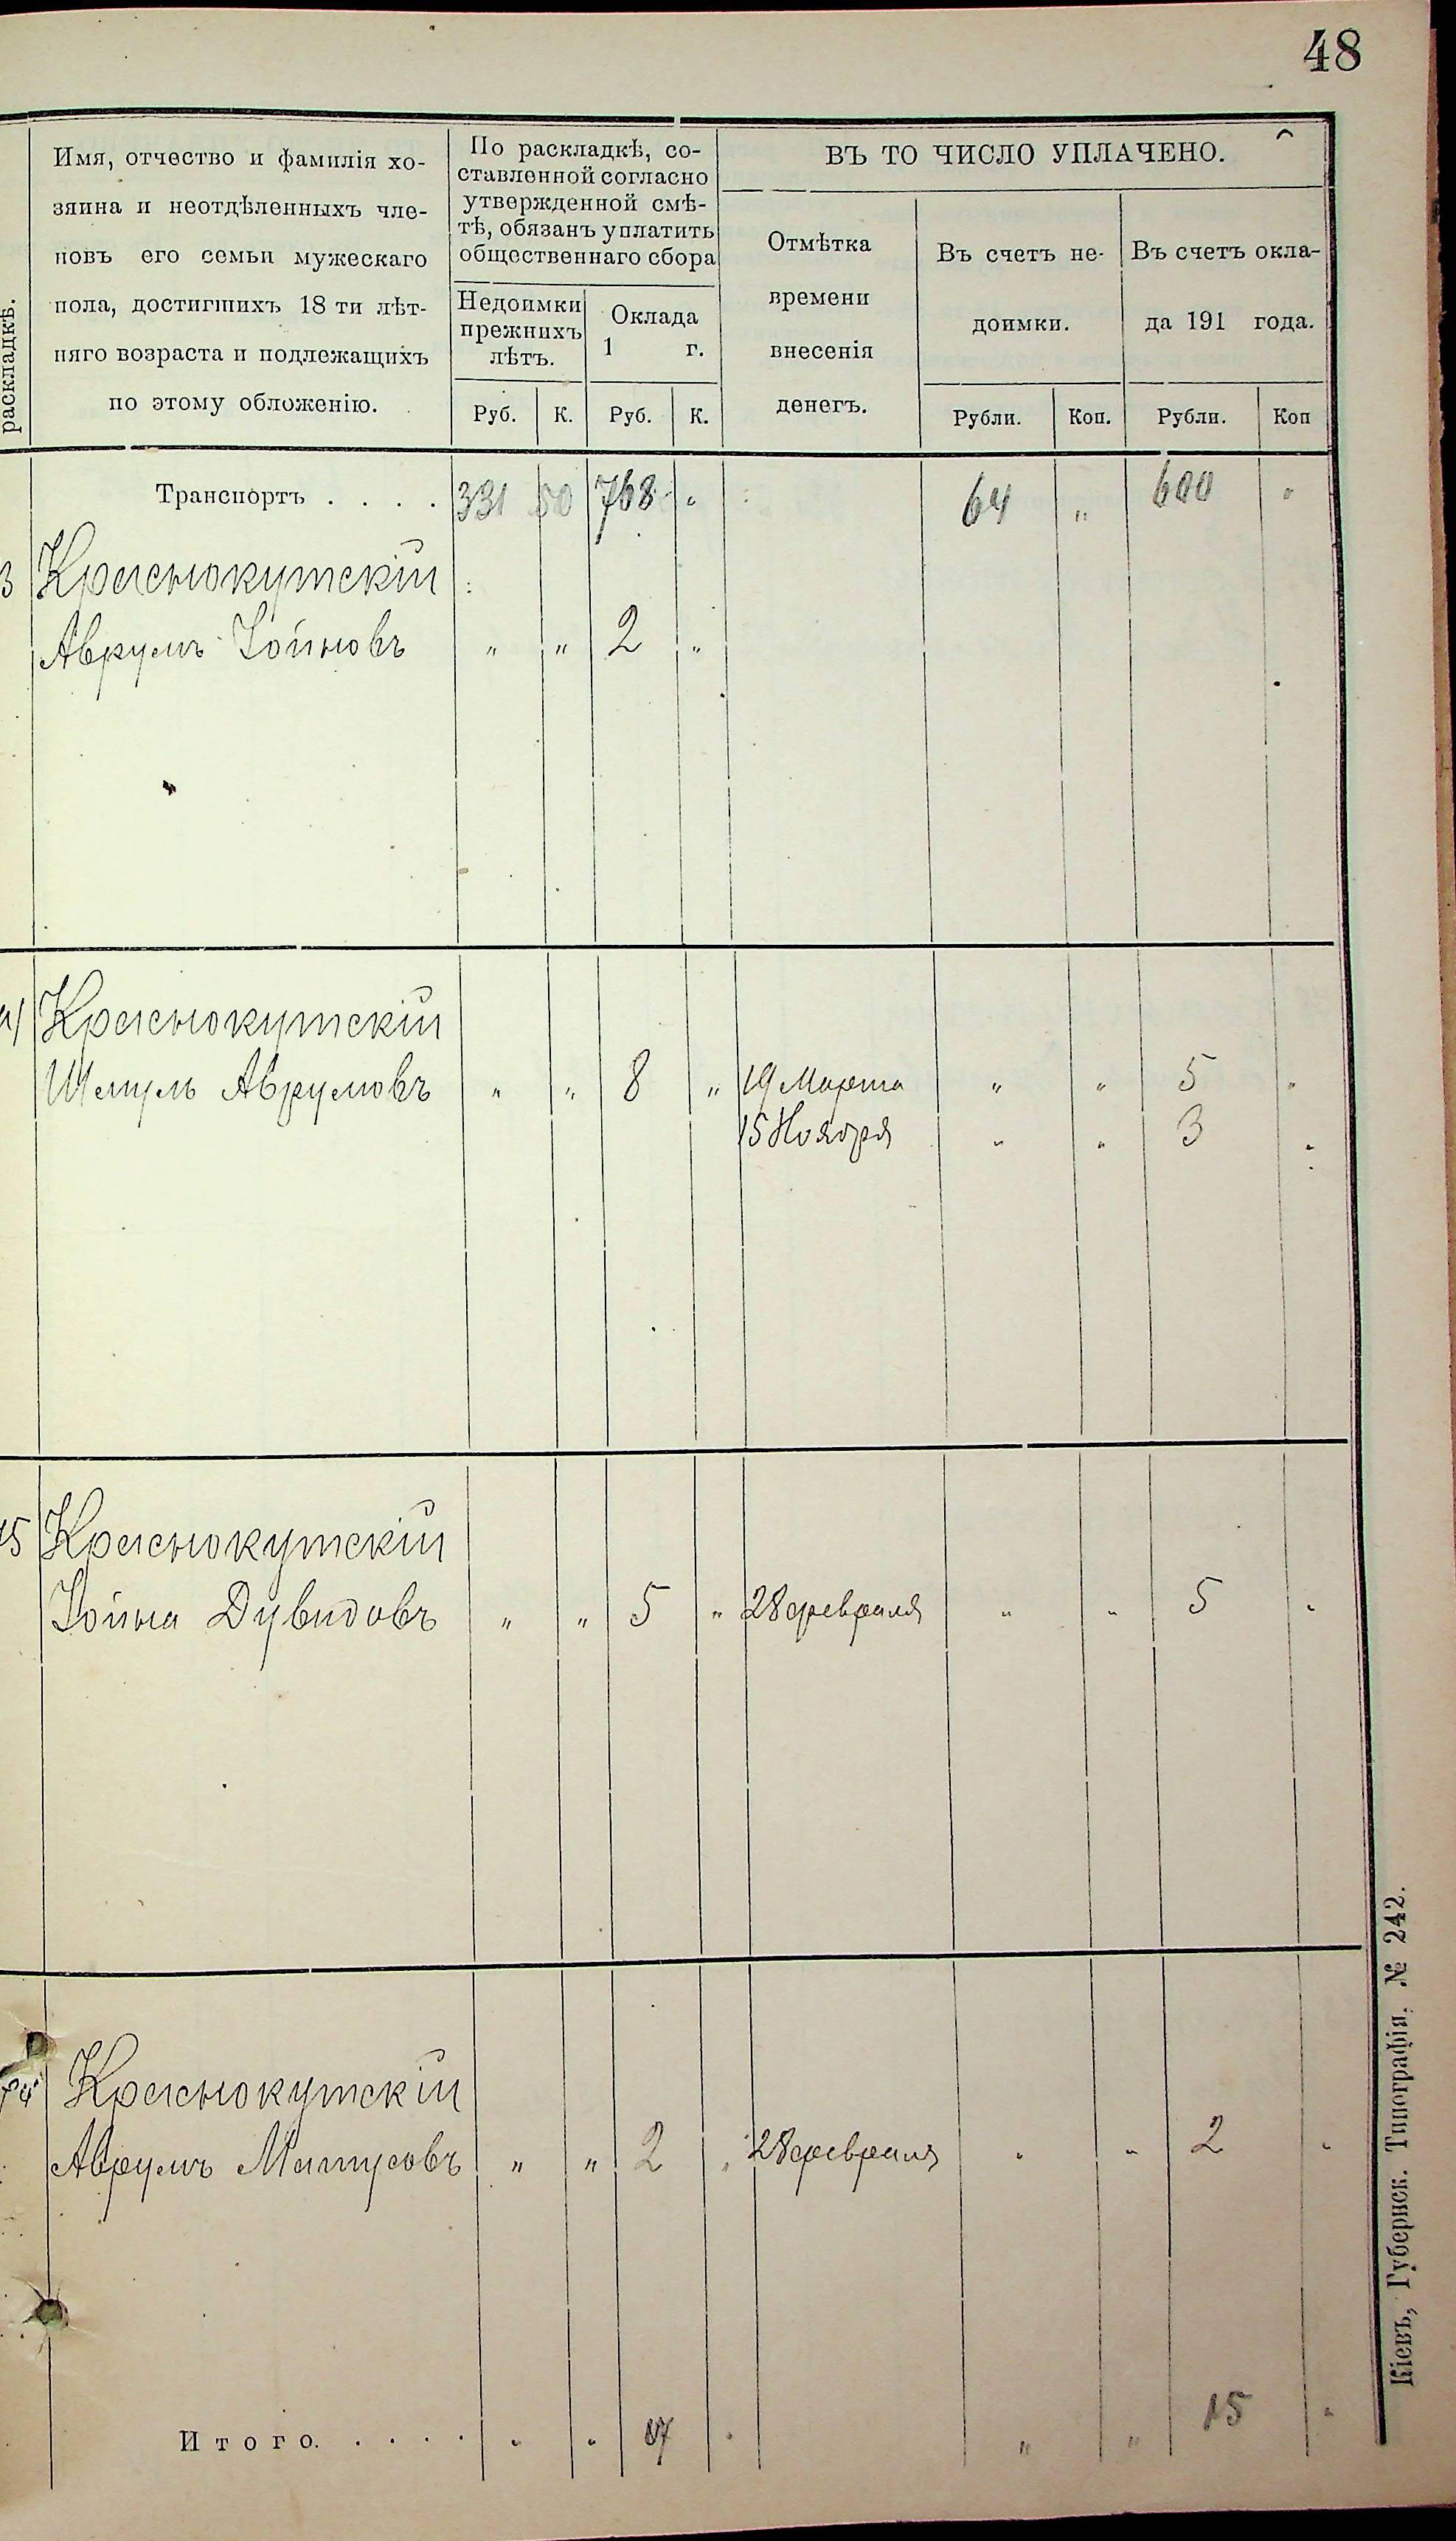 48
раскладкѣ.
Имя, отчество и фамилія хо-
зяина и неотдѣленныхъ чле-
новъ его семьи мужескаго
пола, достигшихъ 18 ти лѣт-
няго возраста и подлежащихъ
по этому обложенію.
По раскладкѣ, со-
ставленной согласно
утвержденной смѣ-
тѣ, обязанъ уплатить
общественнаго сбора
Недоимки
прежнихъ
лѣтъ.
Оклада
1 г.
Руб. К. Руб. К.
ВЪ ТО ЧИСЛО УПЛАЧЕНО.
Отмѣтка
времени
внесенія
денегъ.
Въ счетъ не-
доимки.
Рубли. Коп.
Въ счетъ окла-
да 191 года.
Рубли. Коп
Транспортъ . . . . 331 50 768 " 64 " 600 "
3 Краснокутскій
Аврумъ Іойновъ " " 2 "
Краснокутскій
Шмуль Аврумовъ " " 8 " 19 Марта " " 5 "
15 Ноября " " 3 "
15 Краснокутскій
Іойна Дувидовъ " " 5 " 28 февраля " " 5 "
Краснокутскій
Аврумъ Матусовъ " " 2 " 28 февраля " " 2 "
Итого. . . . . " " 17 " " " 15 "
Кіевъ, Губернск. Типографія. № 242.